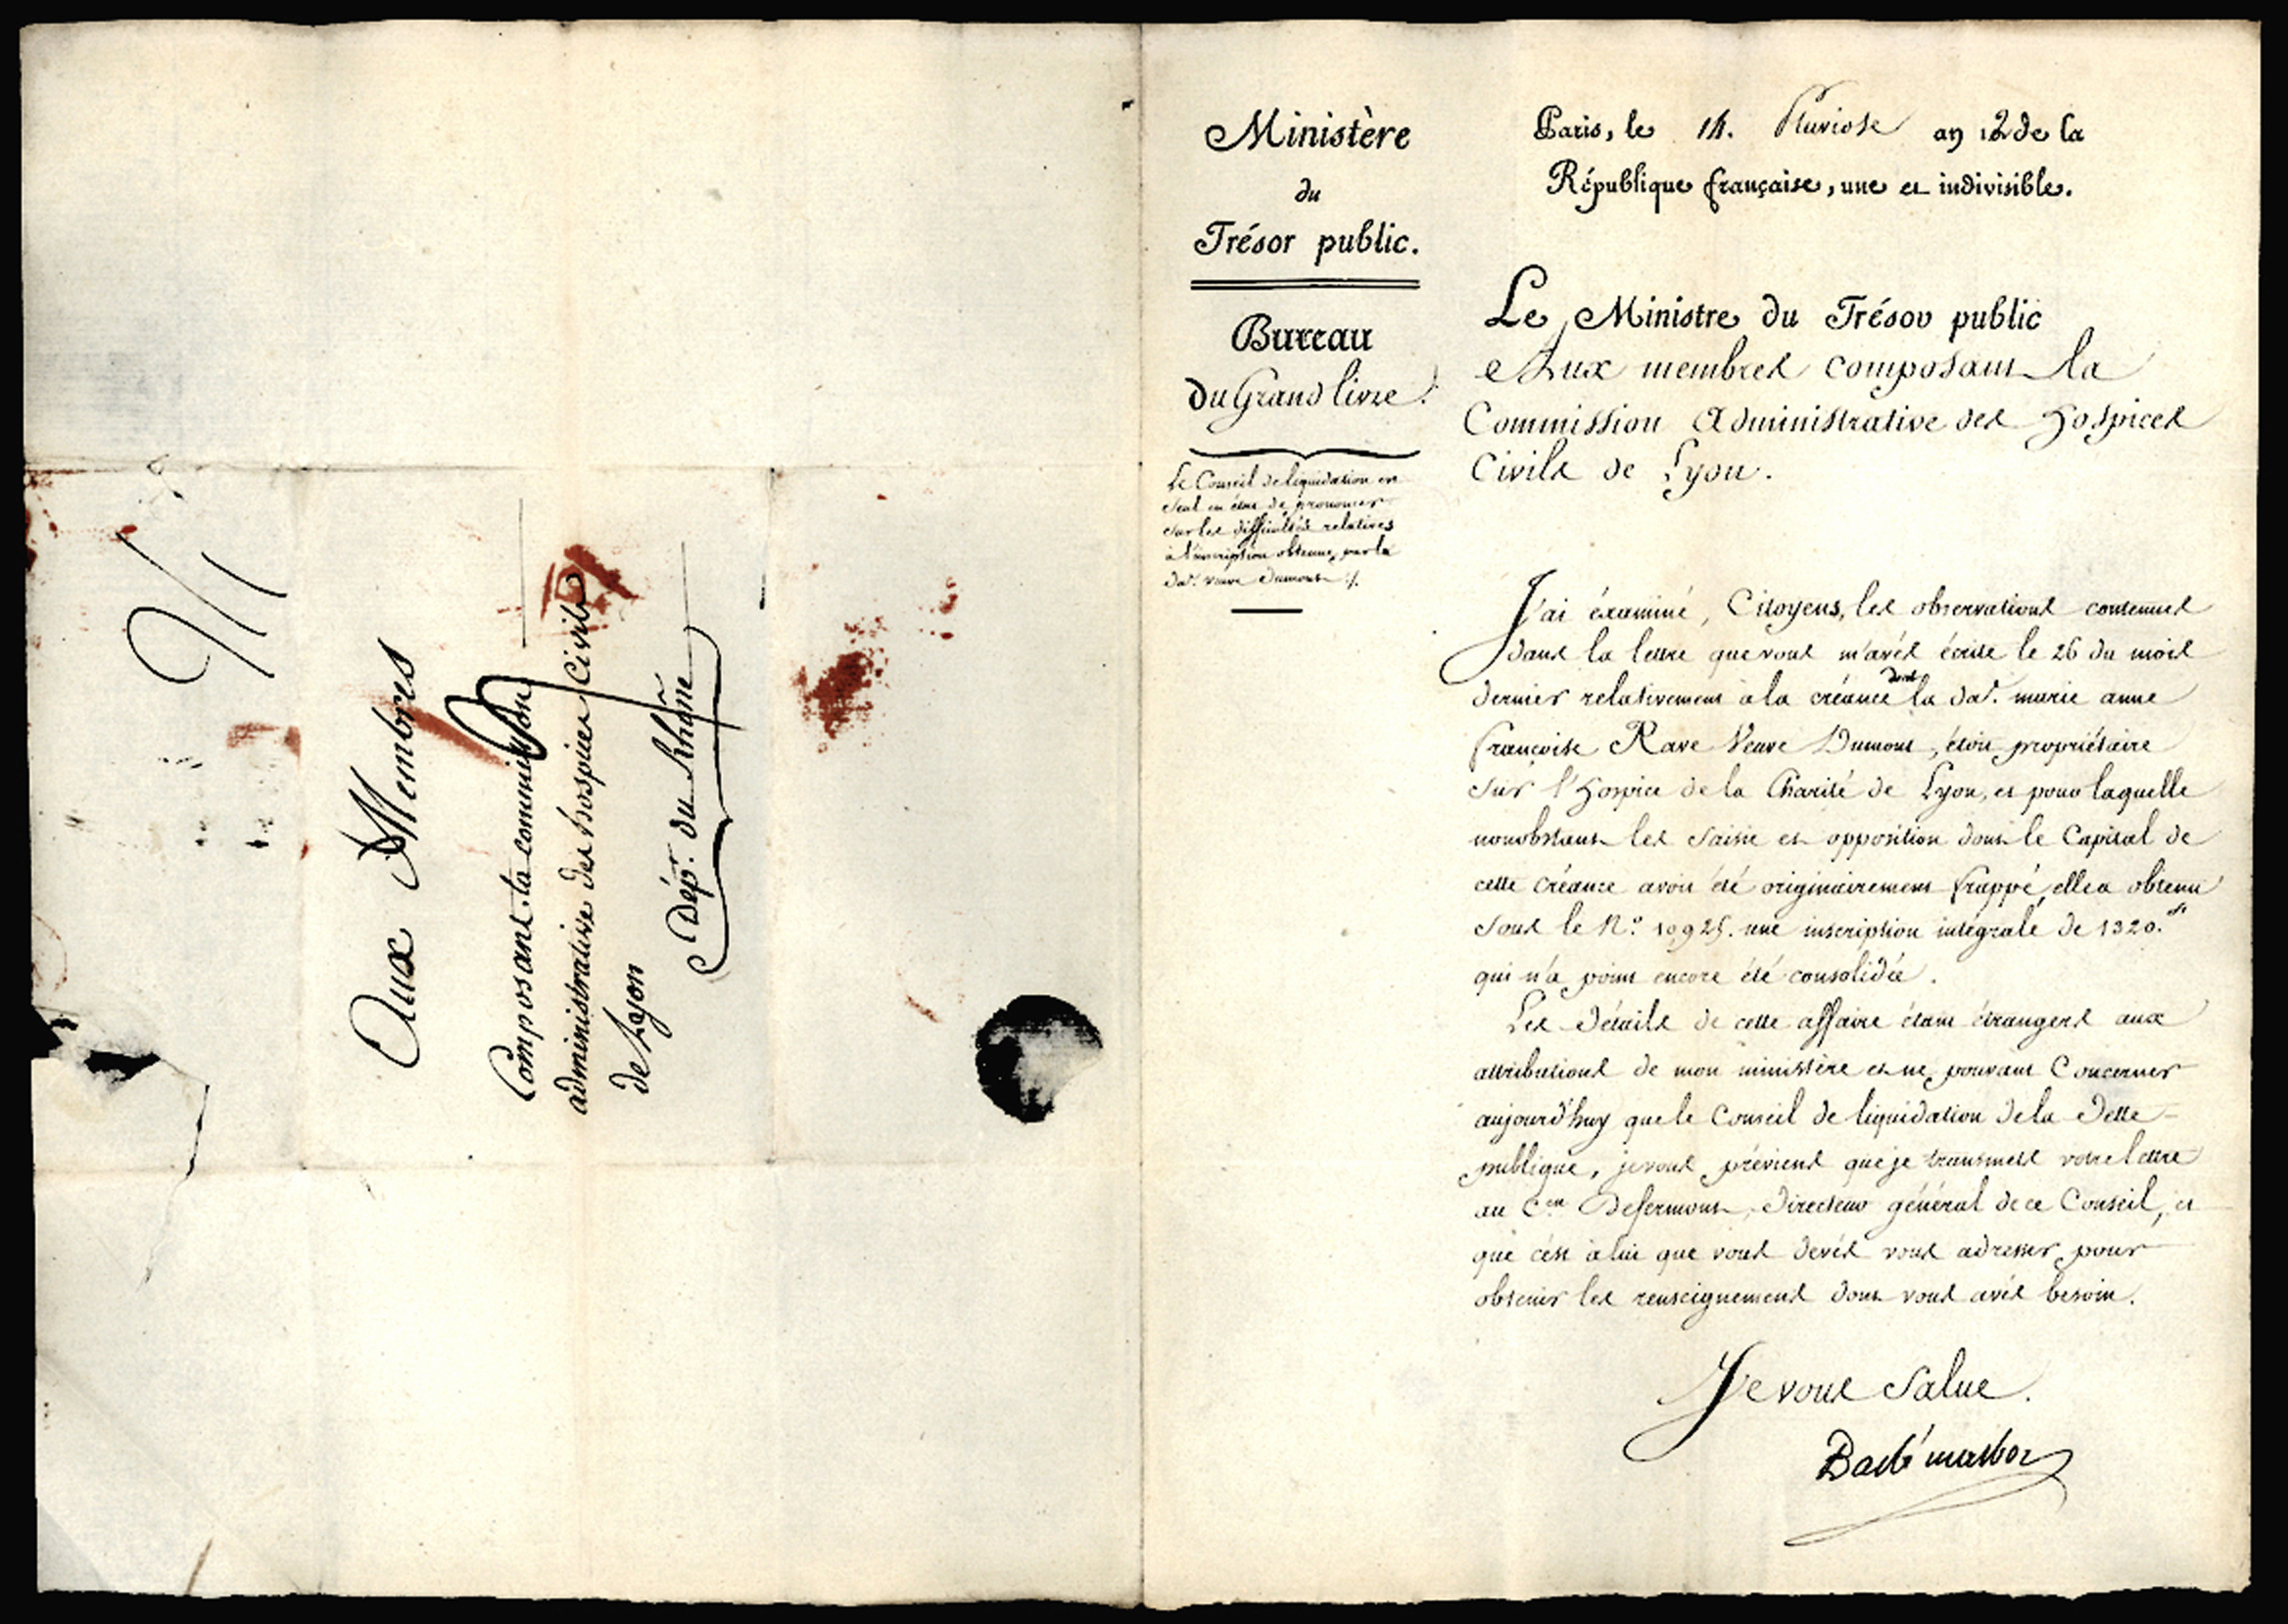 Aux Membres
Composant la commission
administrative des hospices Civils
de Lyon
Dépt. du Rhône
Ministère
du
Trésor public.
Bureau
du Grand livre.
Le Conseil de liquidation est
seul en état de prononcer
sur les difficultés relatives
à l'inscription obtenue par la
da^e. veuve Dumont ./.
Paris, le 14. Pluviose an 12 de la
République française, une et indivisible.
Le Ministre du Trésor public
Aux membres composant la
Commission Administrative des Hospices
Civils de Lyon.
J'ai éxaminé, Citoyens, les observations contenues
dans la lettre que vous m'avés écrite le 26 du mois
dernier relativement à la créance dont la da^e. marie anne
françoise Rave Veuve Dumont, étoit propriétaire
sur l'hospice de la Charité de Lyon, et pour laquelle
nonobstant les saisie et opposition dont le Capital de
cette créance avoit été originairement frappé, elle a obtenu
sous le N.° 10,925. une inscription intégrale de 1320.^f
qui n'a point encore été consolidée.
Les Détails de cette affaire étant étrangers aux
attributions de mon ministère et ne pouvant Concerner
aujourd'huy que le Conseil de liquidation de la Dette
publique, je vous préviens que je transmets votre lettre
au C^en Defermont, Directeur général de ce Conseil, et
que c'est à lui que vous devés vous adresser pour
obtenir les renseignemens dont vous avés besoin.
Je vous Salue.
Barbé marbois